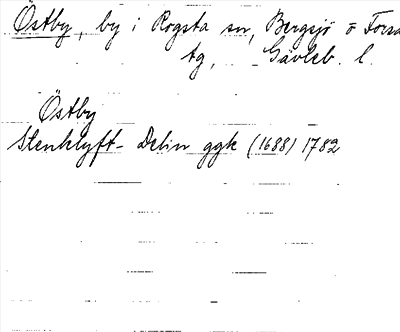 Östby, by i Rogsta sn, Bergsjö o Forsa
tg, Gävleb. l.
Östby
Stenklyft- Delin ggk (1688) 1782